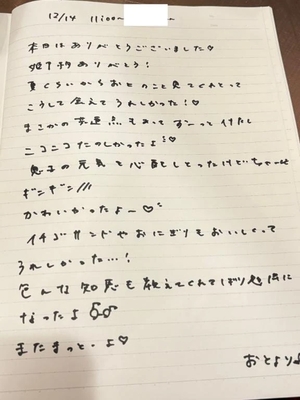 12/14 11:00~
本日はありがとうございました♡
姫予約ありがとう!
夏くらいからおとのこと見てくれとって
こうして会えてうれしかった!♡
まさかの共通点もあってずーっと付たし
ニコニコたのしかったよ!
息子の元気も心配しとったけどちゃーんと
ギンギン///
かわいかったよー♡
イチゴサンドやおにぎりもおいしくって
うれしかった…!
色んな知恵も教えてくれてばり勉強に
なったよ
またまっと-よ♡
おとより